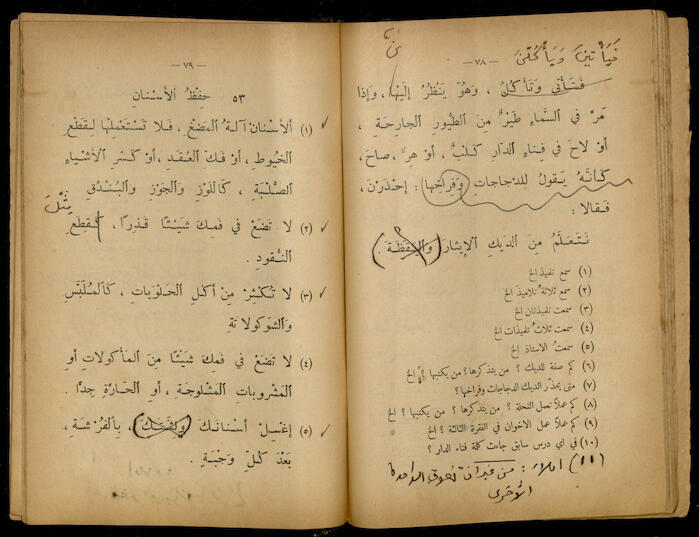 فَيَأْتِينَ وَيَأْكُلْنَ
— ٧٨ —
فَتَأْتِي وَتَأْكُلُ ، وَهُوَ يَنْظُرُ إِلَيْهَا ، وَإِذَا
مَرَّ فِي السَّمَاءِ طَيْرٌ مِنَ الطُّيُورِ الْجَارِحَةِ ،
أَوْ لَاحَ فِي فِنَاءِ الدَّارِ كَلْبٌ ، أَوْ هِرٌّ ، صَاحَ ،
كَأَنَّهُ يَقُولُ لِلدَّجَاجَاتِ وَفِرَاخِهَا : اِحْذَرْنَ ،
فَقَالَا :
نَتَعَلَّمُ مِنَ الدِّيكِ الْإِيثَارَ (وَالْيَقَظَةَ) .
(١) سمع تلميذ الخ
(٢) سمع ثلاثة تلاميذ الخ
(٣) سمعت تلميذتان الخ
(٤) سمعت ثلاث تلميذات الخ
(٥) سمعتُ الاستاذ الخ
(٦) كم صفة للديك ؟ من يتذكرها ؟ من يكتبها ؟ الخ
(٧) متى يحذّر الديك الدجاجات وفراخها؟
(٨) كم عملاً تعمل النحلة ؟ من يتذكرها ؟ من يكتبها ؟ الخ
(٩) كم عملاً عمل الاخوان في الفقرة الثالثة ؟ الخ
(١٠) في اي درس سابق جاءت كلمة فناء الدار ؟
(١١) املاء : من
الأخرى
— ٧٩ —
٥٣ حِفْظُ الْأَسْنَانِ
(١) اَلْأَسْنَانُ آلَةُ الْمَضْغِ ، فَلَا تَسْتَعْمِلْهَا لِقَطْعِ
الْخُيُوطِ ، أَوْ فَكِّ الْعُقَدِ ، أَوْ كَسْرِ الْأَشْيَاءِ
الصُّلْبَةِ ، كَاللَّوْزِ وَالْجَوْزِ وَالْبُنْدُقِ
مِثْلَ
(٢) لَا تَضَعْ فِي فَمِكَ شَيْئًا قَذِرًا ، كَقِطَعِ
النُّقُودِ .
(٣) لَا تُكْثِرْ مِنْ أَكْلِ الْحَلْوِيَاتِ ، كَالْمُلَبَّسِ
وَالشُّوكُولَاتَةِ
(٤) لَا تَضَعْ فِي فَمِكَ شَيْئًا مِنَ الْمَأْكُولَاتِ أَوِ
الْمَشْرُوبَاتِ الْمَثْلُوجَةِ ، أَوِ الْحَارَّةِ جِدًّا .
(٥) اِغْسِلْ أَسْنَانَكَ (وَلِثَتَكَ) ، بِالْفُرْشَةِ ،
بَعْدَ كُلِّ وَجْبَةٍ .